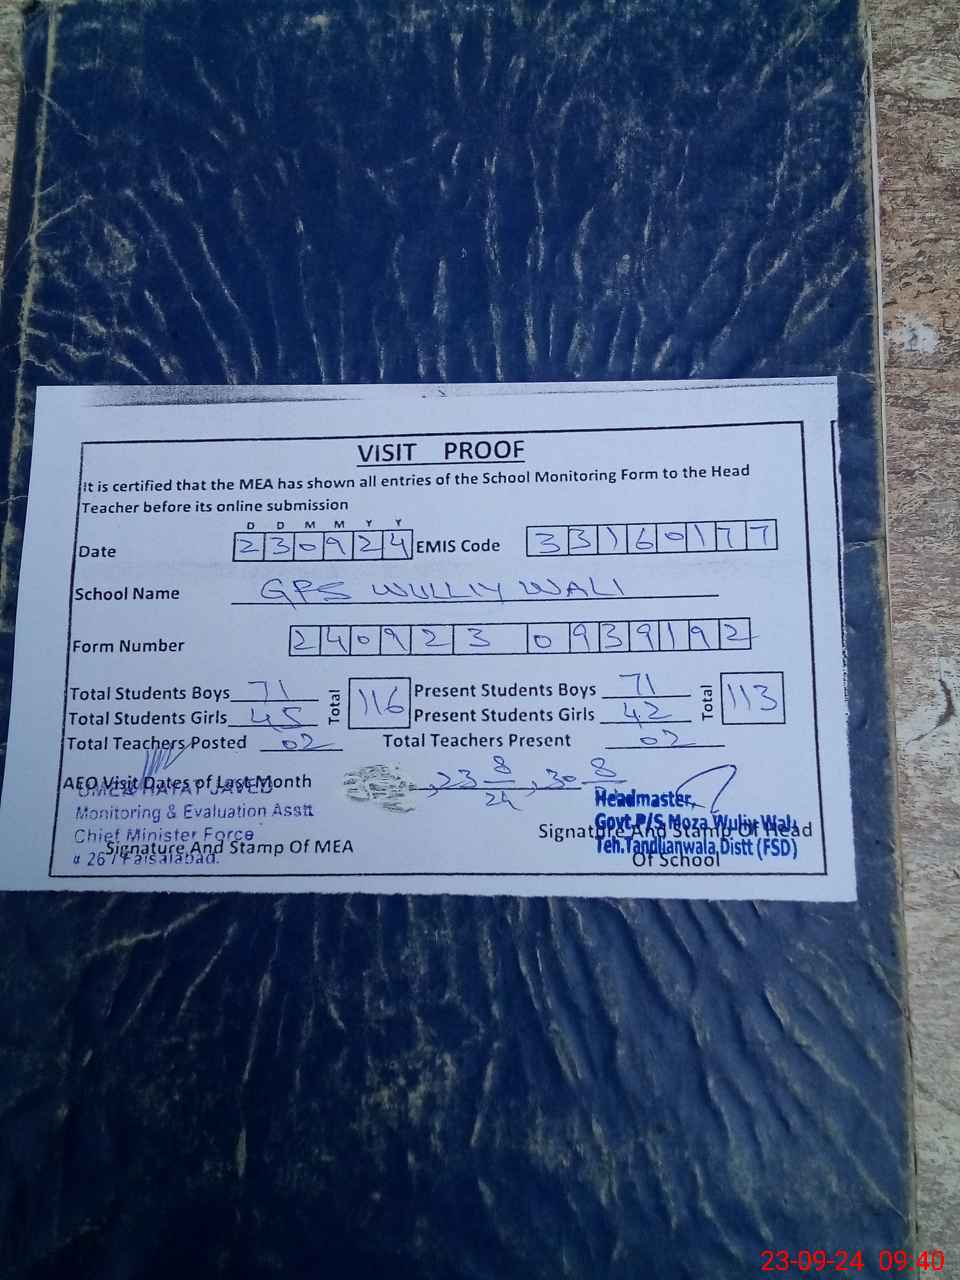 VISIT PROOF
It is certified that the MEA has shown all entries of the School Monitoring Form to the Head
Teacher before its online submission
D D M M Y Y
Date 230924 EMIS Code 33160177
School Name GPS WULLIY WALI
Form Number 240923 0939192
Total Students Boys 71 Total 116 Present Students Boys 71 Total 113
Total Students Girls 45 Present Students Girls 42
Total Teachers Posted 02 Total Teachers Present 02
AEO Visit Dates of Last Month , 23 8/24 , 30 8
HAYAT JAVED
Monitoring & Evaluation Asstt
Chief Minister Force
# 267 Faisalabad.
Signature And Stamp Of MEA
Headmaster,
Govt.P/S Moza Wuliy Wali
Teh.Tandlianwala Distt (FSD)
Signature And Stamp Of Head
Of School
23-09-24 09:40